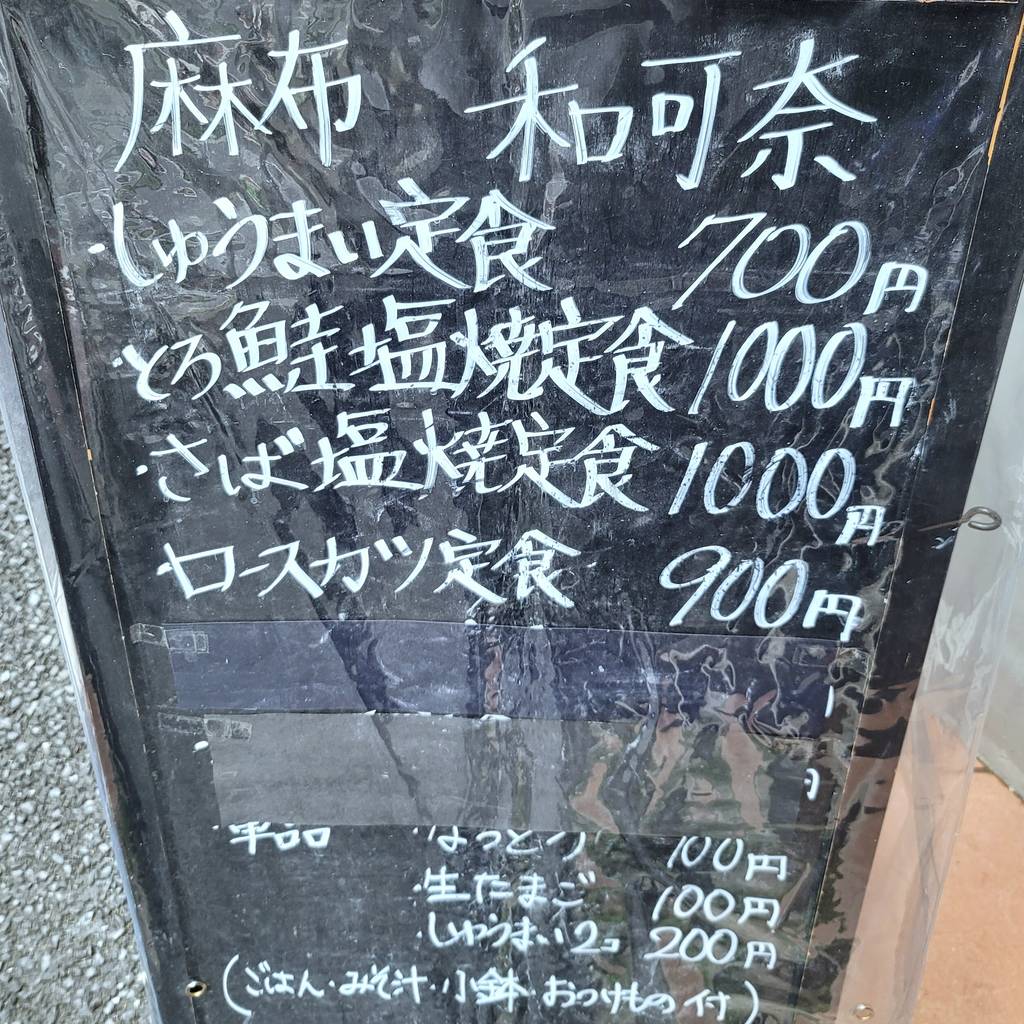 麻布 和可奈
・しゅうまい定食 700円
・とろ鮭塩焼定食 1000円
・さば塩焼定食 1000円
・ロースカツ定食 900円
単品 ・なっとう 100円
・生たまご 100円
・しゅうまい2コ 200円
(ごはん・みそ汁・小鉢・おつけもの付)